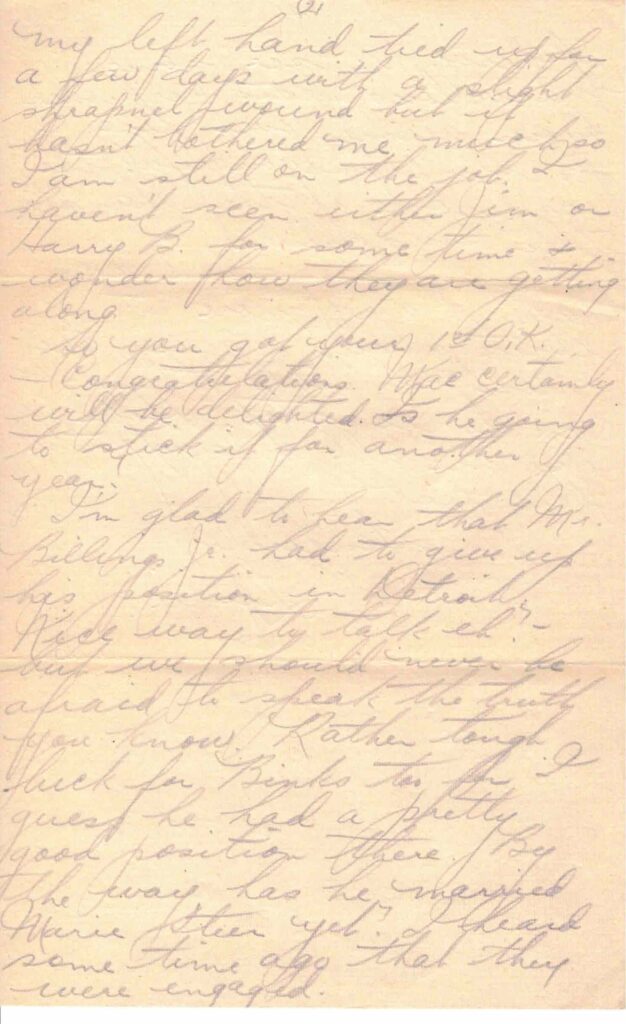 (2)
my left hand tied up for
a few days with a slight
shrapnel wound but it
hasn't bothered me much so
I am still on the job. I
haven't seen either Jim or
Harry B. for some time &
wonder how they are getting
along
So you got your 1st O.K.
- Congratulations. Mac certainly
will be delighted. Is he going
to stick it for another
year.
I'm glad to hear that Mr.
Billings Jr. had to give up
his position in Detroit.
Nice way to talk eh? -
but we should never be
afraid to speak the truth
you know. Rather tough
luck for Binks too for I
guess he had a pretty
good position there. By
the way has he married
Marie Steer yet? I heard
some time ago that they
were engaged.